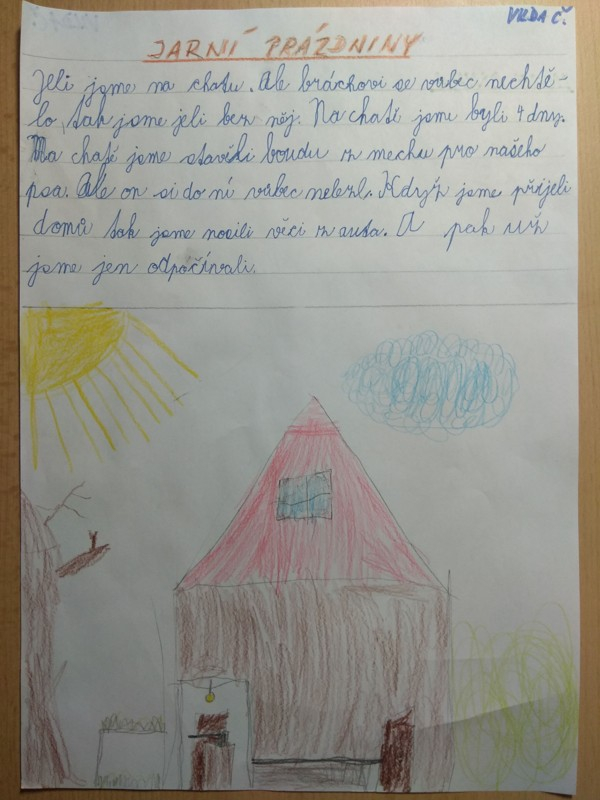 VILDA Č.
JARNÍ PRÁZDNINY
Jeli jsme na chatu. Ale bráchovi se vůbec nechtě-
lo, tak jsme jeli bez něj. Na chatě jsme byli 4 dny.
Na chatě jsme stavěli boudu z mechu pro našeho
psa. Ale on si do ní vůbec nelezl. Když jsme přijeli
domů tak jsme nosili věci z auta. A pak už
jsme jen odpočívali.